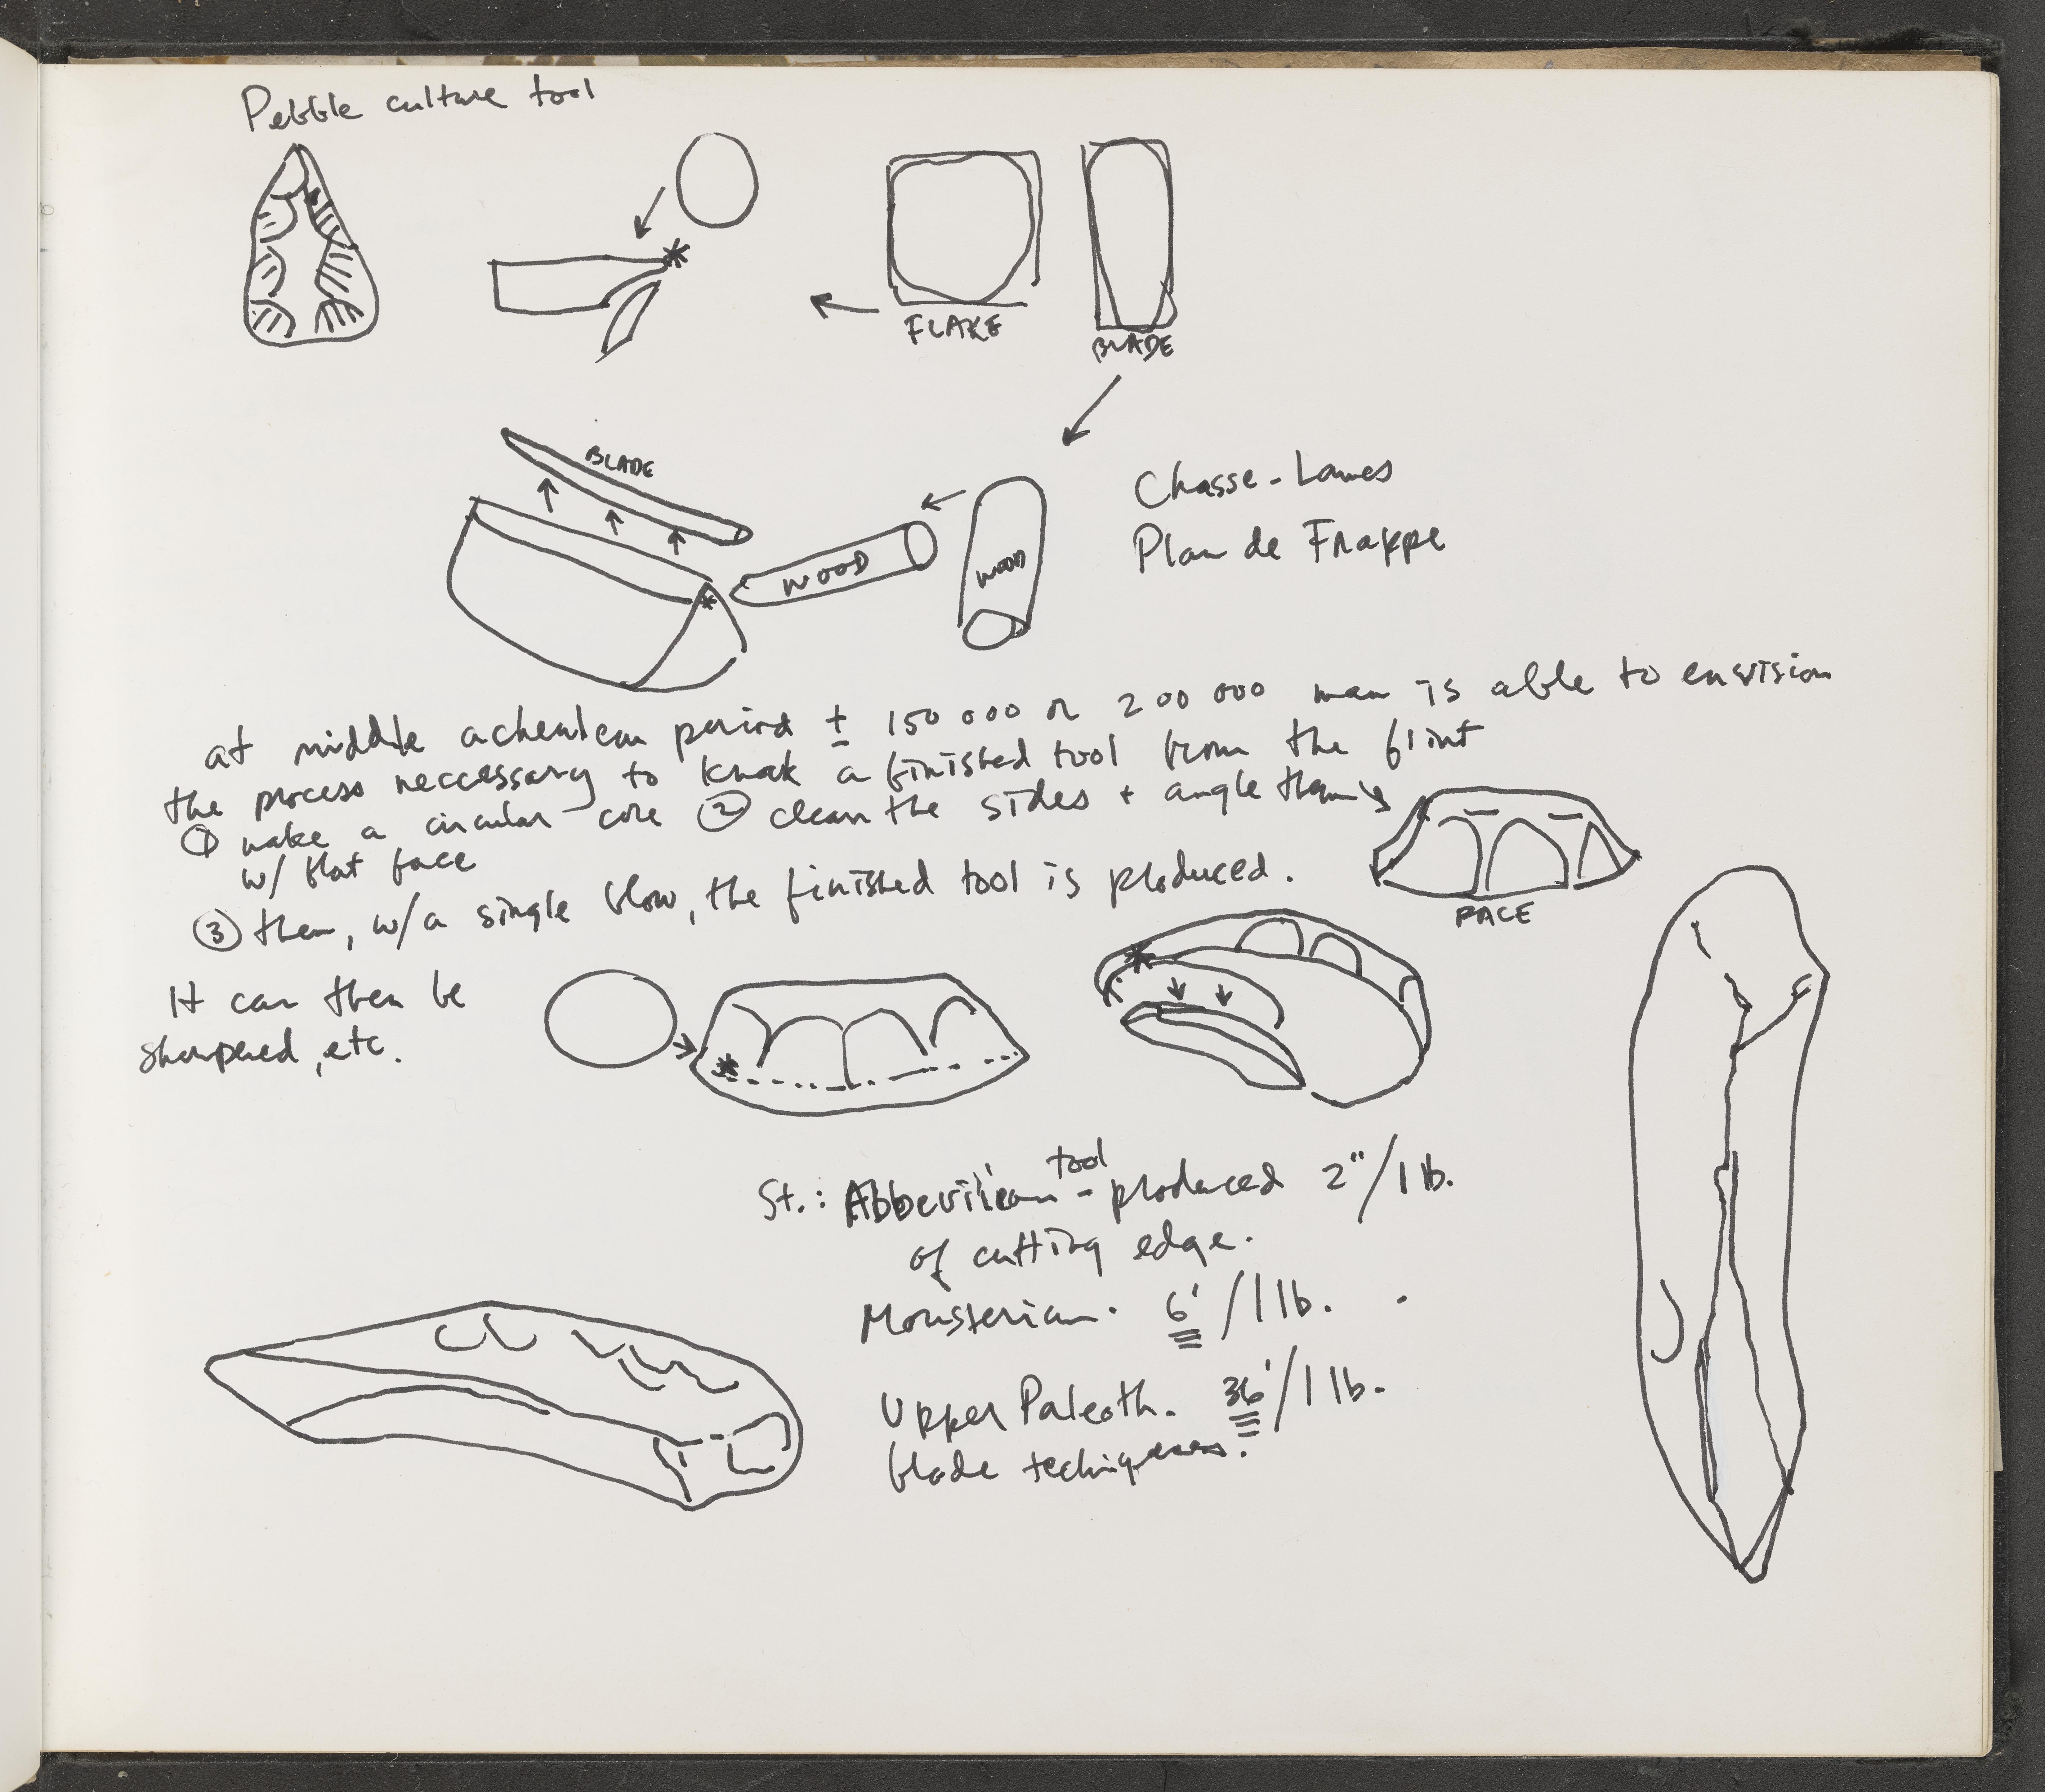 Pebble culture tool
FLAKE
BLADE
BLADE
WOOD
WOOD
Chasse-Lames
Plan de Frappe
at middle acheulean period ± 150 000 or 200 000 man is able to envision
the process neccessary to knock a finished tool from the flint
① make a circular core ② clean the sides + angle them
w/ flat face
③ then, w/a single blow, the finished tool is produced.
FACE
It can then be
sharpened, etc.
St.: Abbevillean tool - produced 2"/1 lb.
of cutting edge.
Mousterian. 6'/1 lb.
Upper Paleoth. 36'/1 lb.
blade techniques.